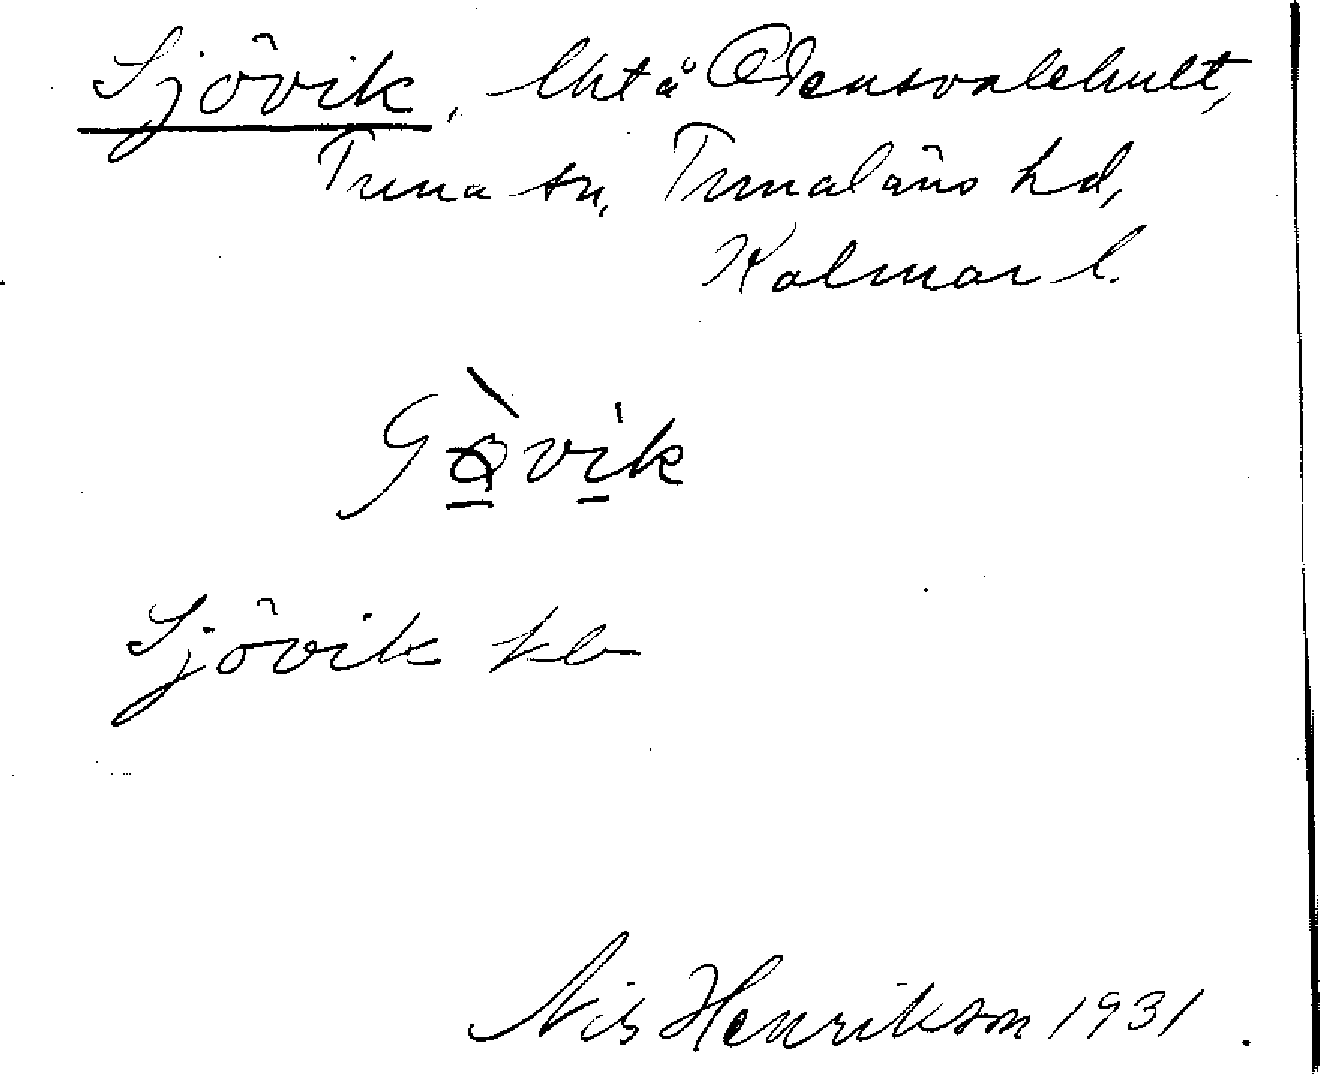 Sjövik, lht å Odensvalehult,
Tuna sn, Tunaläns hd,
Kalmar l.
Sjövik
Nils Henrikson 1931